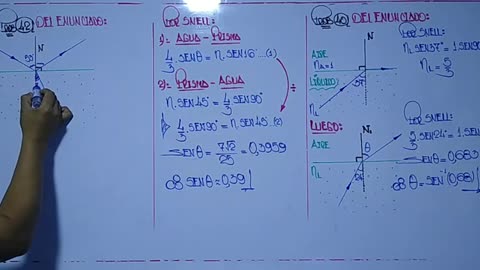 42) DEL ENUNCIADO:
N
53°
POR SNELL:
1): AGUA - PRISMA
4/3 . SENθ = n. SEN16° ...(1)
2): PRISMA - AGUA
n. SEN45° = 4/3 SEN90°
4/3 SEN90° = n. SEN45° ...(2)
÷
SENθ = 7√2/25 = 0,3959
∞8 SENθ = 0,39
DEL ENUNCIADO:
AIRE
nA = 1
N
LÍQUIDO:
37°
nL
POR SNELL:
n. SEN37° = 1. SEN90
nL = 5/3
LUEGO:
AIRE
N
θ
nL
24°
POR SNELL:
5/3 SEN24° = 1. SEN
SENθ = 0,683
∞8 θ = SEN⁻¹(0,68)